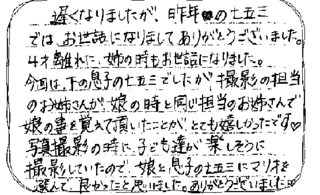 遅くなりましたが、昨年の七五三
では、お世話になりましてありがとうございました。
4才離れた、姉の時もお世話になりました。
今回は、下の息子の七五三でしたが撮影の担当
のお姉さんが、娘の時と同じ担当のお姉さんで
娘の事を覚えて頂いたことが、とても嬉しかったです♡
写真撮影の時に、子ども達が楽しそうに
撮影していたので、娘と息子の七五三にマリオを
選んで、良かったと思いました。ありがとうございました。